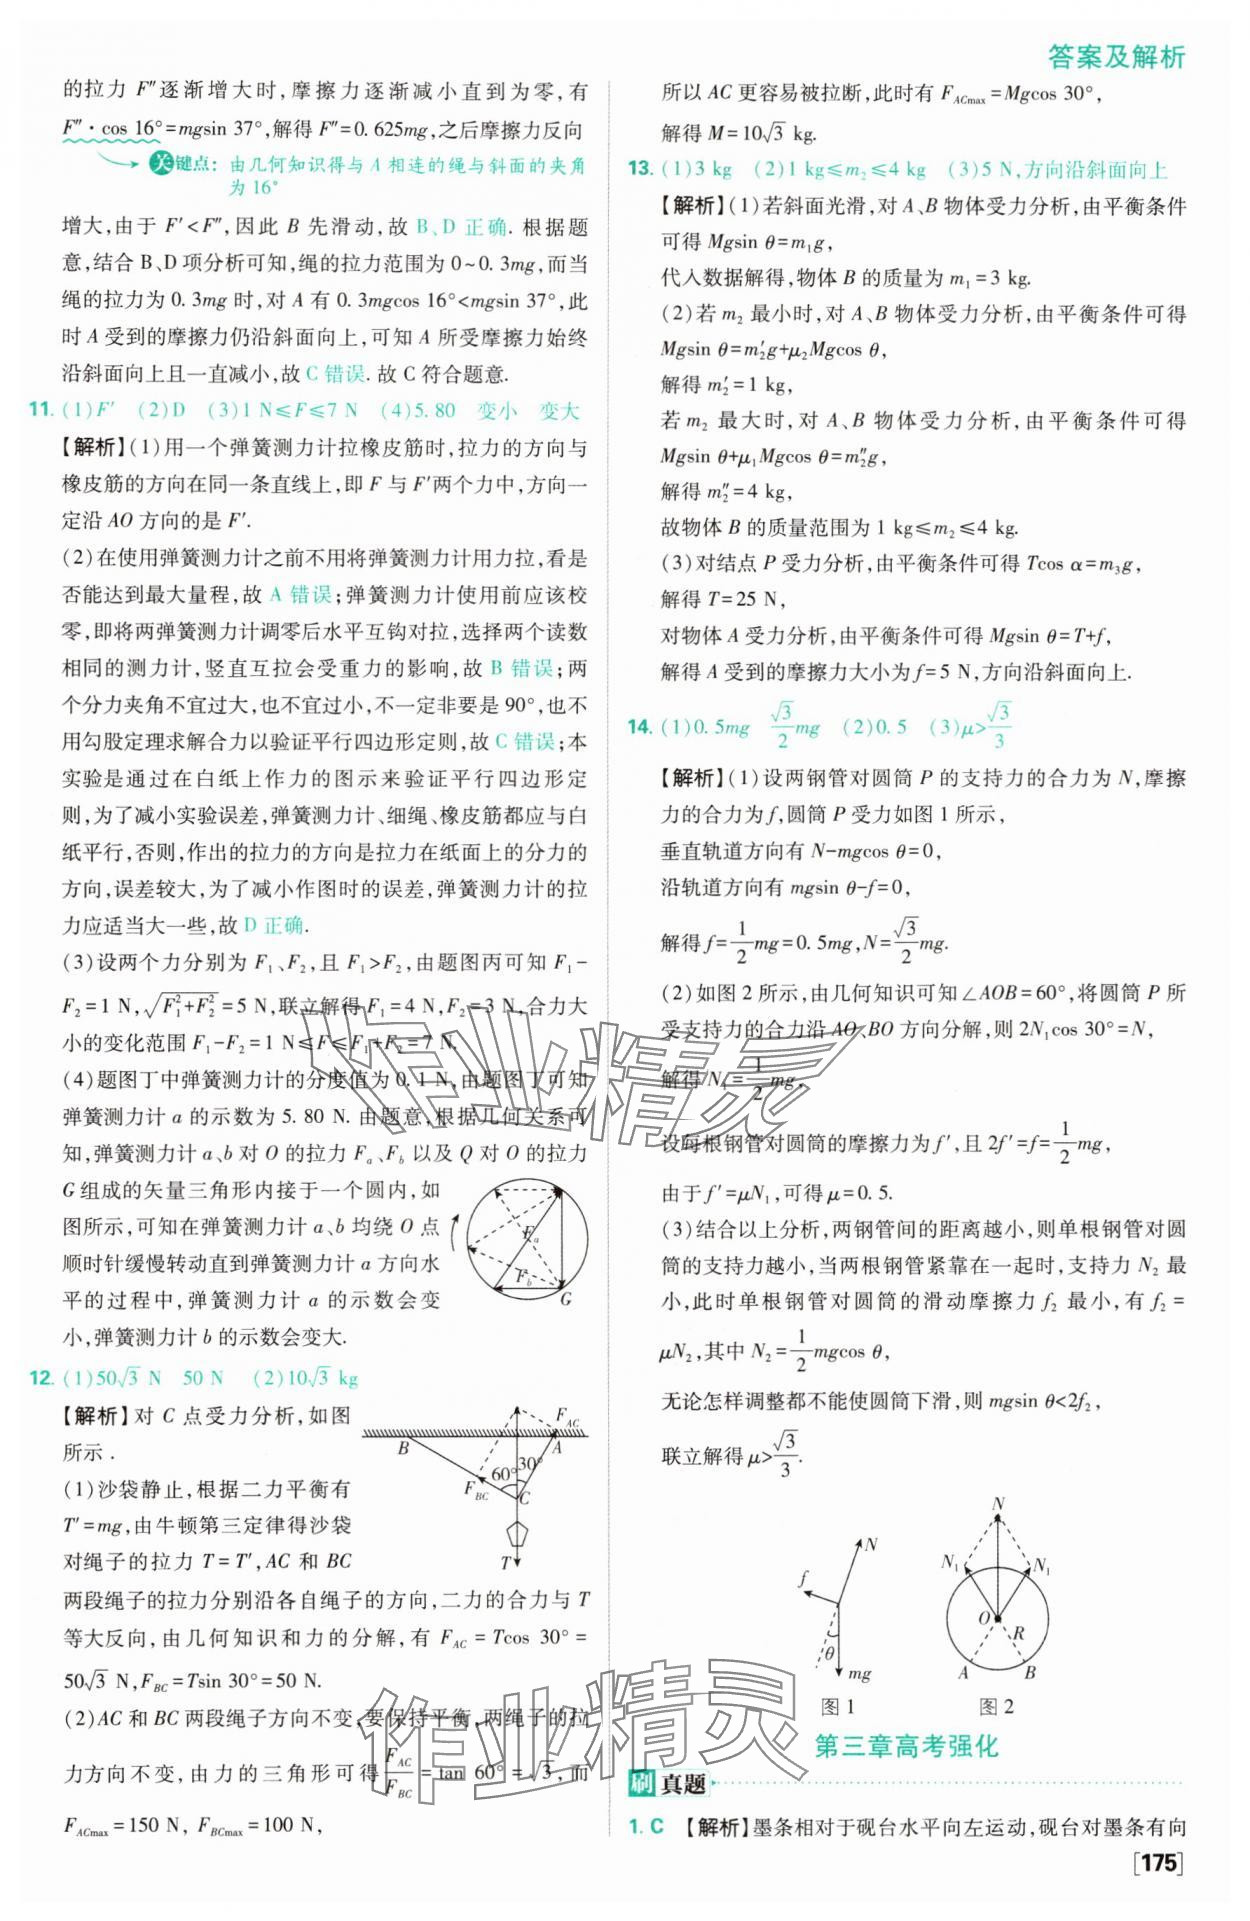 答案及解析
的拉力 F″逐渐增大时,摩擦力逐渐减小直到为零,有
F″·cos 16°=mgsin 37°,解得 F″=0.625mg,之后摩擦力反向
关键点: 由几何知识得与 A 相连的绳与斜面的夹角
为 16°
增大,由于 F′<F″,因此 B 先滑动,故 B、D 正确. 根据题
意,结合 B、D 项分析可知,绳的拉力范围为 0~0.3mg,而当
绳的拉力为 0.3mg 时,对 A 有 0.3mgcos 16°<mgsin 37°,此
时 A 受到的摩擦力仍沿斜面向上,可知 A 所受摩擦力始终
沿斜面向上且一直减小,故 C 错误. 故 C 符合题意.
11. (1)F′ (2)D (3)1 N≤F≤7 N (4)5.80 变小 变大
【解析】(1)用一个弹簧测力计拉橡皮筋时,拉力的方向与
橡皮筋的方向在同一条直线上,即 F 与 F′两个力中,方向一
定沿 AO 方向的是 F′.
(2)在使用弹簧测力计之前不用将弹簧测力计用力拉,看是
否能达到最大量程,故 A 错误;弹簧测力计使用前应该校
零,即将两弹簧测力计调零后水平互钩对拉,选择两个读数
相同的测力计,竖直互拉会受重力的影响,故 B 错误;两
个分力夹角不宜过大,也不宜过小,不一定非要是 90°,也不
用勾股定理求解合力以验证平行四边形定则,故 C 错误;本
实验是通过在白纸上作力的图示来验证平行四边形定
则,为了减小实验误差,弹簧测力计、细绳、橡皮筋都应与白
纸平行,否则,作出的拉力的方向是拉力在纸面上的分力的
方向,误差较大,为了减小作图时的误差,弹簧测力计的拉
力应适当大一些,故 D 正确.
(3)设两个力分别为 F₁、F₂,且 F₁>F₂,由题图丙可知 F₁-
F₂=1 N,√(F₁²+F₂²)=5 N,联立解得 F₁=4 N,F₂=3 N,合力大
小的变化范围 F₁-F₂=1 N≤F≤F₁+F₂=7 N.
(4)题图丁中弹簧测力计的分度值为 0.1 N,由题图丁可知
弹簧测力计 a 的示数为 5.80 N. 由题意,根据几何关系可
知,弹簧测力计 a、b 对 O 的拉力 Fa、Fb 以及 Q 对 O 的拉力
G 组成的矢量三角形内接于一个圆内,如
图所示,可知在弹簧测力计 a、b 均绕 O 点
顺时针缓慢转动直到弹簧测力计 a 方向水
平的过程中,弹簧测力计 a 的示数会变
小,弹簧测力计 b 的示数会变大.
Fa
Fb
G
12. (1)50√3 N 50 N (2)10√3 kg
【解析】对 C 点受力分析,如图
所示.
(1)沙袋静止,根据二力平衡有
T′=mg,由牛顿第三定律得沙袋
对绳子的拉力 T=T′,AC 和 BC
B
F_AC
A
60°
30°
F_BC
C
T
两段绳子的拉力分别沿各自绳子的方向,二力的合力与 T
等大反向,由几何知识和力的分解,有 F_AC=Tcos 30°=
50√3 N,F_BC=Tsin 30°=50 N.
(2)AC 和 BC 两段绳子方向不变,要保持平衡,两绳子的拉
力方向不变,由力的三角形可得 F_AC/F_BC=tan 60°=√3,而
F_ACmax=150 N, F_BCmax=100 N,
所以 AC 更容易被拉断,此时有 F_ACmax=Mgcos 30°,
解得 M=10√3 kg.
13. (1)3 kg (2)1 kg≤m₂≤4 kg (3)5 N,方向沿斜面向上
【解析】(1)若斜面光滑,对 A、B 物体受力分析,由平衡条件
可得 Mgsin θ=m₁g,
代入数据解得,物体 B 的质量为 m₁=3 kg.
(2)若 m₂ 最小时,对 A、B 物体受力分析,由平衡条件可得
Mgsin θ=m₂′g+μ₂Mgcos θ,
解得 m₂′=1 kg,
若 m₂ 最大时,对 A、B 物体受力分析,由平衡条件可得
Mgsin θ+μ₁Mgcos θ=m₂″g,
解得 m₂″=4 kg,
故物体 B 的质量范围为 1 kg≤m₂≤4 kg.
(3)对结点 P 受力分析,由平衡条件可得 Tcos α=m₃g,
解得 T=25 N,
对物体 A 受力分析,由平衡条件可得 Mgsin θ=T+f,
解得 A 受到的摩擦力大小为 f=5 N,方向沿斜面向上.
14. (1)0.5mg √3/2 mg (2)0.5 (3)μ>√3/3
【解析】(1)设两钢管对圆筒 P 的支持力的合力为 N,摩擦
力的合力为 f,圆筒 P 受力如图 1 所示,
垂直轨道方向有 N-mgcos θ=0,
沿轨道方向有 mgsin θ-f=0,
解得 f=1/2 mg=0.5mg,N=√3/2 mg.
(2)如图 2 所示,由几何知识可知∠AOB=60°,将圆筒 P 所
受支持力的合力沿 AO、BO 方向分解,则 2N₁cos 30°=N,
解得 N₁=1/2 mg,
设每根钢管对圆筒的摩擦力为 f′,且 2f′=f=1/2 mg,
由于 f′=μN₁,可得 μ=0.5.
(3)结合以上分析,两钢管间的距离越小,则单根钢管对圆
筒的支持力越小,当两根钢管紧靠在一起时,支持力 N₂ 最
小,此时单根钢管对圆筒的滑动摩擦力 f₂ 最小,有 f₂=
μN₂,其中 N₂=1/2 mgcos θ,
无论怎样调整都不能使圆筒下滑,则 mgsin θ<2f₂,
联立解得 μ>√3/3.
N
f
θ
mg
图 1
N
N₁
N₁
O
R
A
B
图 2
第三章高考强化
刷真题
1. C 【解析】墨条相对于砚台水平向左运动,砚台对墨条有向
[175]
作业精灵
作业精灵